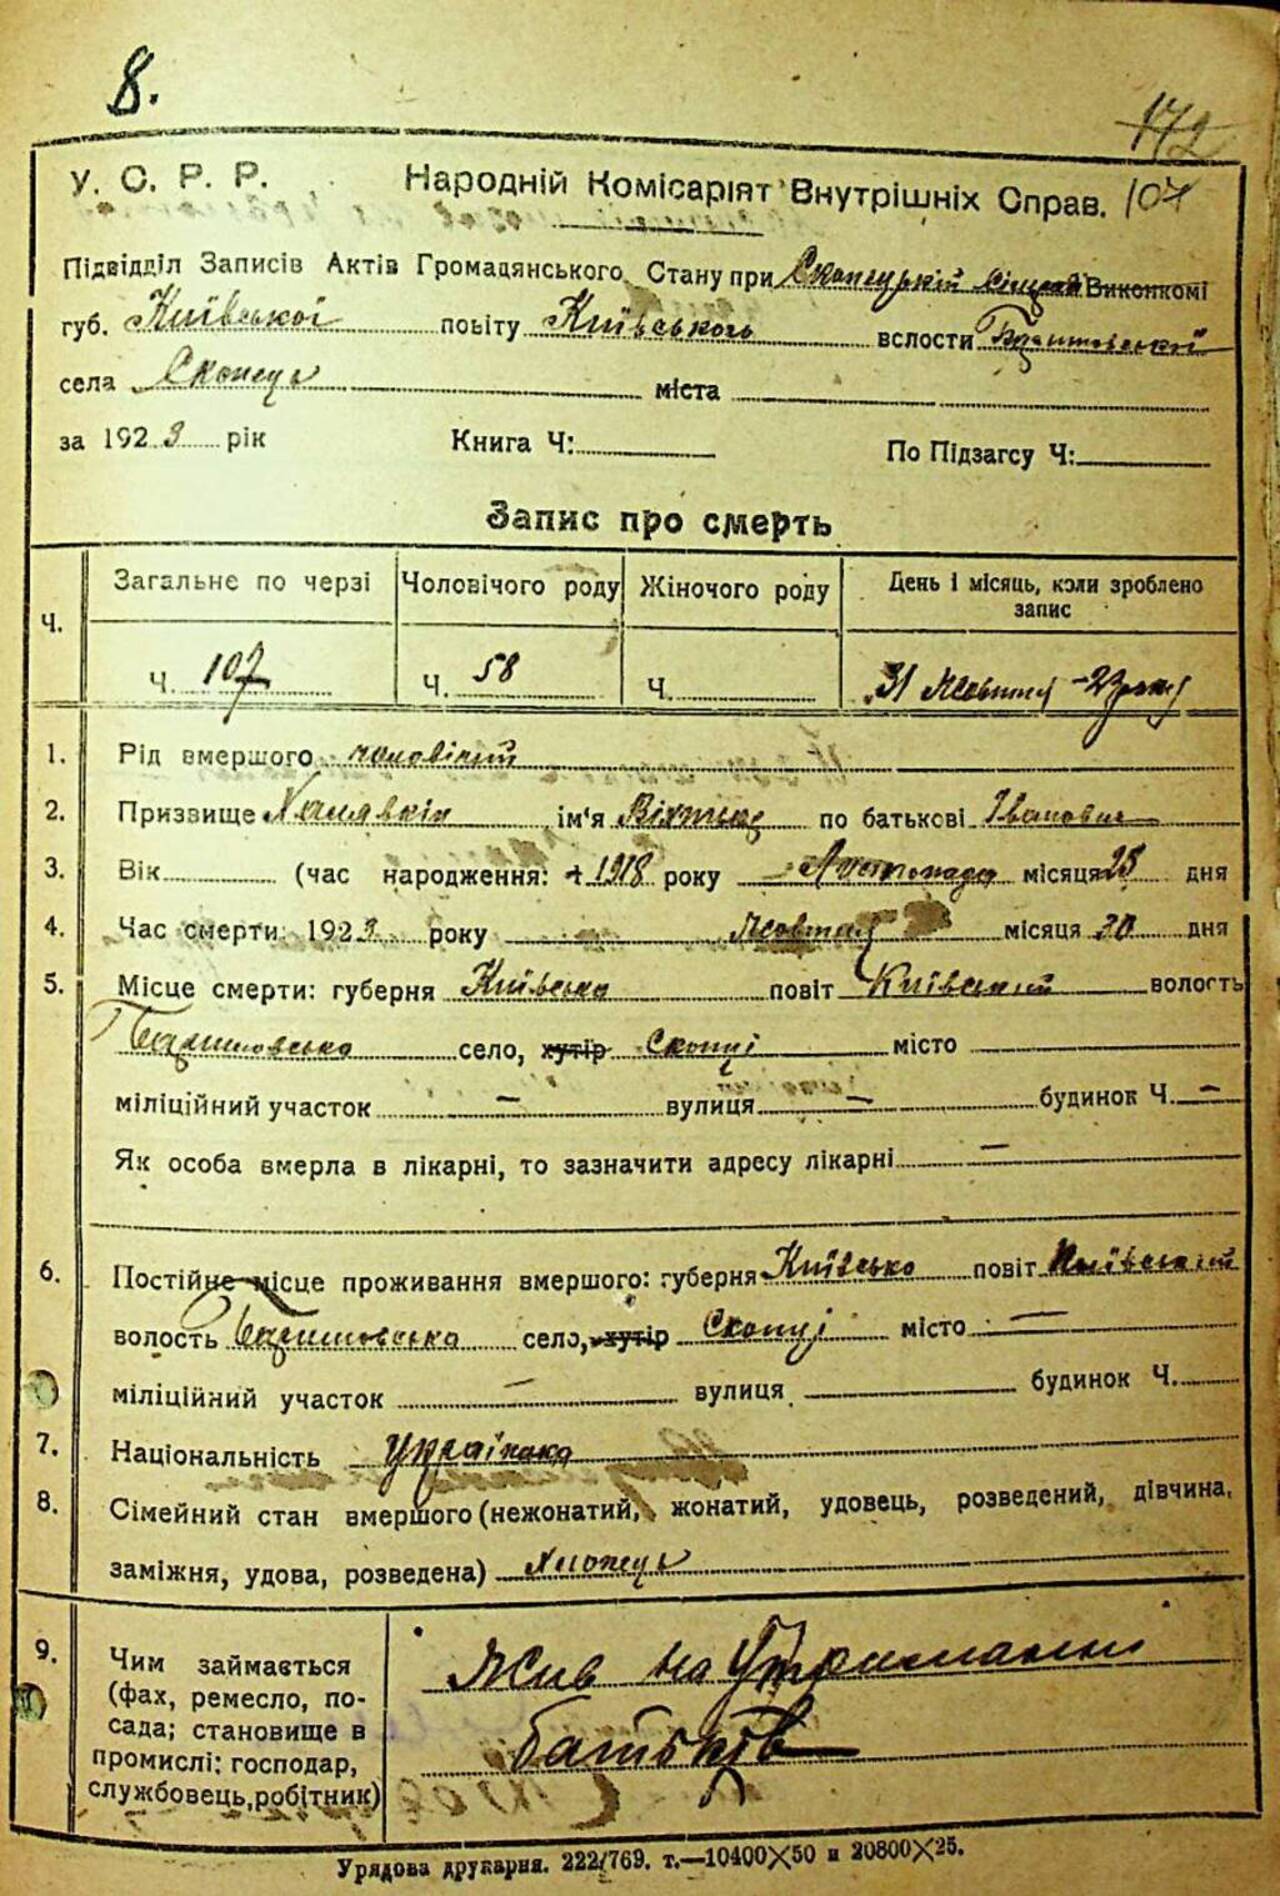 8.
172
У. С. Р. Р. Народній Комісаріят Внутрішніх Справ. 107
Підвідділ Записів Актів Громадянського Стану при Скопецькій Виконкомі
губ. Київської повіту Київського волости
села Скопець міста
за 1923 рік Книга Ч: По Підзагсу Ч:
Запис про смерть
Ч. Загальне по черзі Чоловічого роду Жіночого роду День і місяць, коли зроблено запис
Ч. 107 Ч. 58 Ч. 31 Жовтня -23 року
1. Рід вмершого чоловічий
2. Призвище Халявкін ім'я Віктор по батькові Іванович
3. Вік (час народження: 1918 року Листопада місяця 25 дня
4. Час смерти: 1923 року Жовтня місяця 30 дня
5. Місце смерти: губерня Київська повіт Київський волость
село, хутір Скопці місто
міліційний участок — вулиця — будинок Ч. —
Як особа вмерла в лікарні, то зазначити адресу лікарні —
6. Постійне місце проживання вмершого: губерня Київсько повіт Київський
волость село, хутір Скопці місто —
міліційний участок — вулиця будинок Ч.
7. Національність Українка
8. Сімейний стан вмершого (нежонатий, жонатий, удовець, розведений, дівчина,
заміжня, удова, розведена) Хлопець
9. Чим займається
(фах, ремесло, по-
сада; становище в
промислі: господар,
службовець, робітник)
Жив на Утриманні
батьків
Урядова друкарня. 222/769. т.—10400X50 и 20800X25.